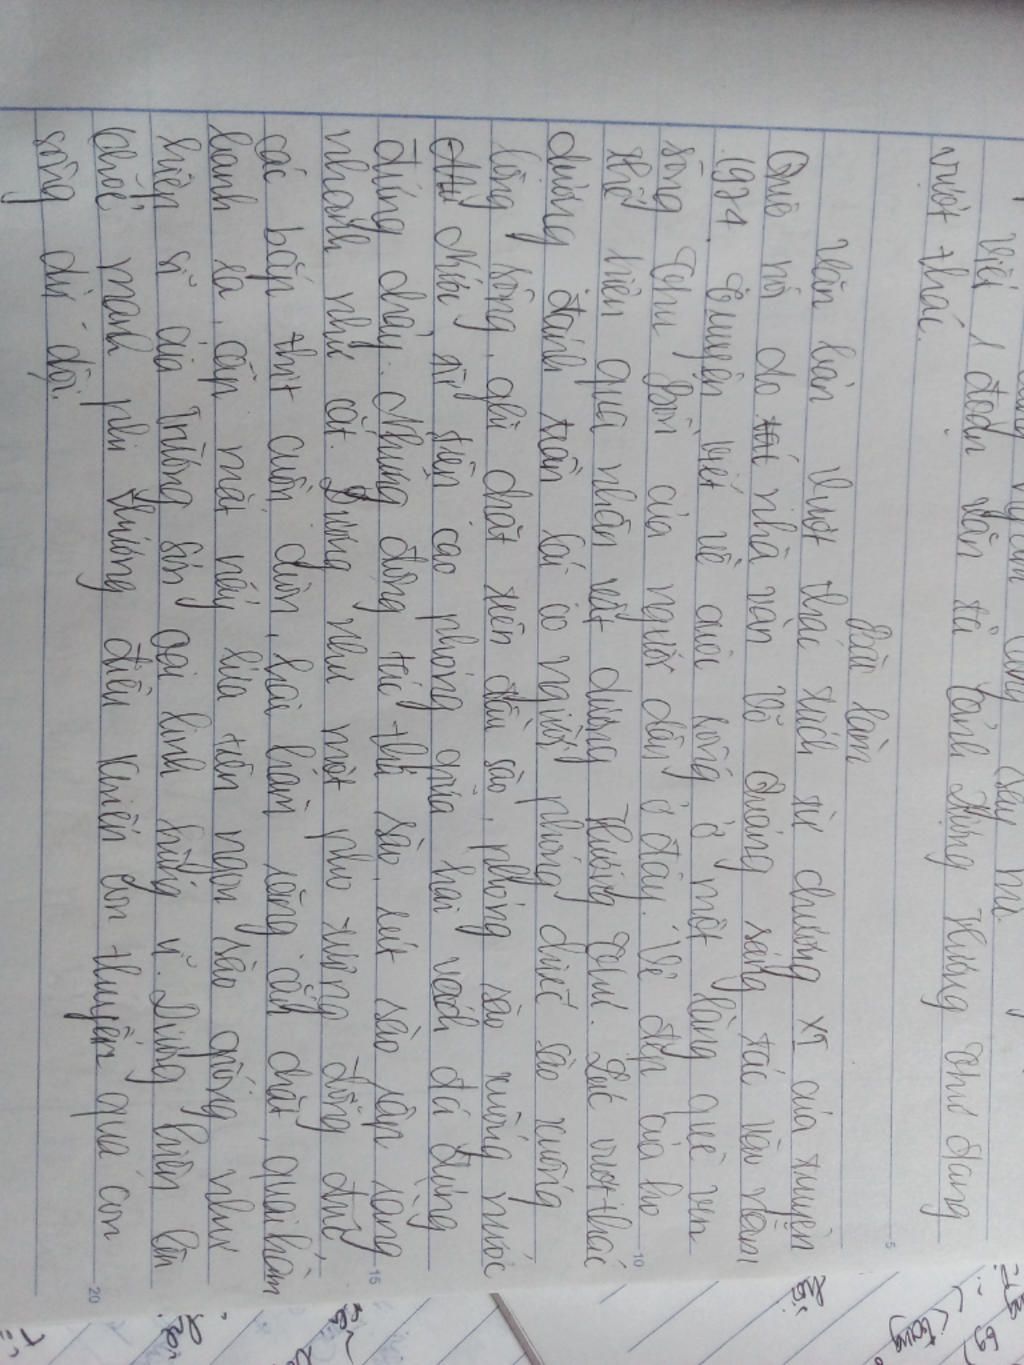 Viết 1 đoạn văn tả cảnh Dượng Hương Thư đang
vượt thác.
Bài làm
Văn bản Vượt thác trích từ chương XI của truyện
Quê nội do nhà văn Võ Quảng sáng tác vào năm
1974. Truyện viết về cuộc sống ở một làng quê ven
sông Thu Bồn của người dân ở đây. Vẻ đẹp của họ
thể hiện qua nhân vật dượng Hương Thư. Lúc vượt thác
dượng đánh trần
lòng sông, ghì chặt trên đầu sào, phóng sào xuống nước
Nước từ trên cao phóng giữa hai vách đá dựng
đứng chảy. Những động tác thả sào, rút sào rập ràng
nhanh như cắt. Dượng như một pho tượng đồng đúc,
các bắp thịt cuồn cuộn, hai hàm răng cắn chặt, quai hàm
banh ra, cặp mắt nảy lửa trên ngọn sào giống như
hiệp sĩ của Trường Sơn oai linh hùng vĩ. Dượng hiện lên
khoẻ mạnh phi thường điều khiển con thuyền qua con
sông dữ dội.
5
10
15
20